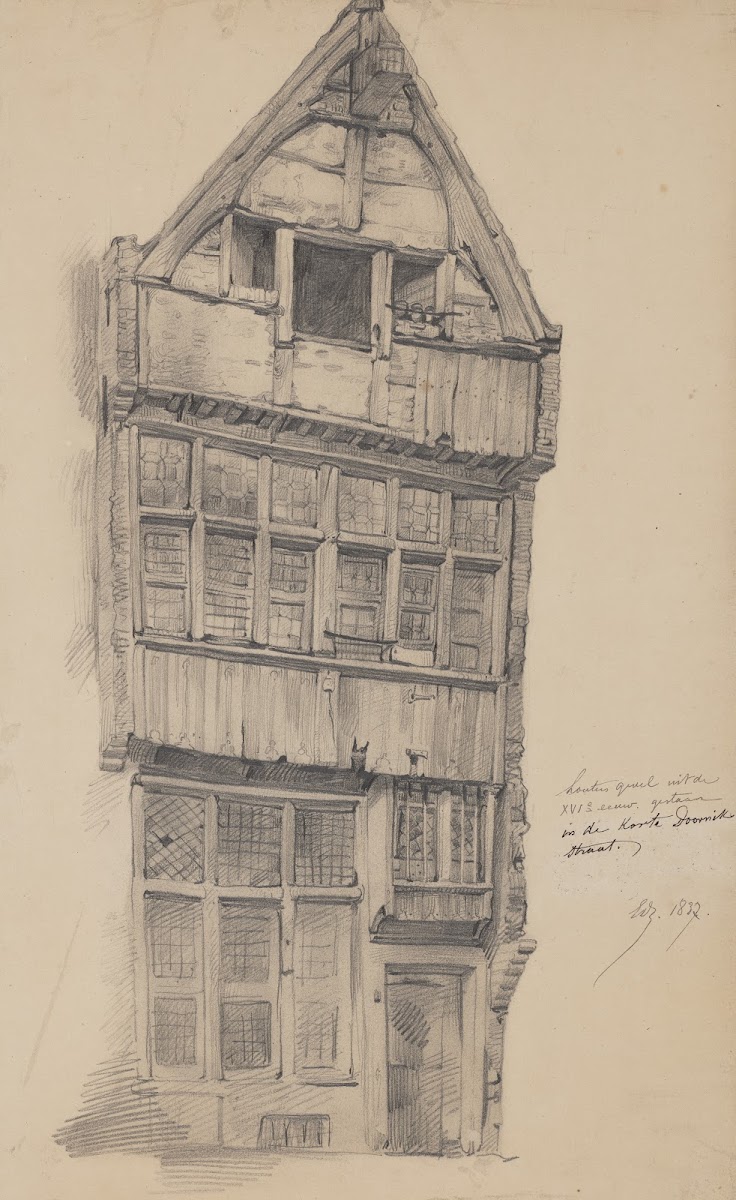 houten gevel uit de
XVIe eeuw. gestaan
in de Korte Doornik
straat.
Edz. 1837.